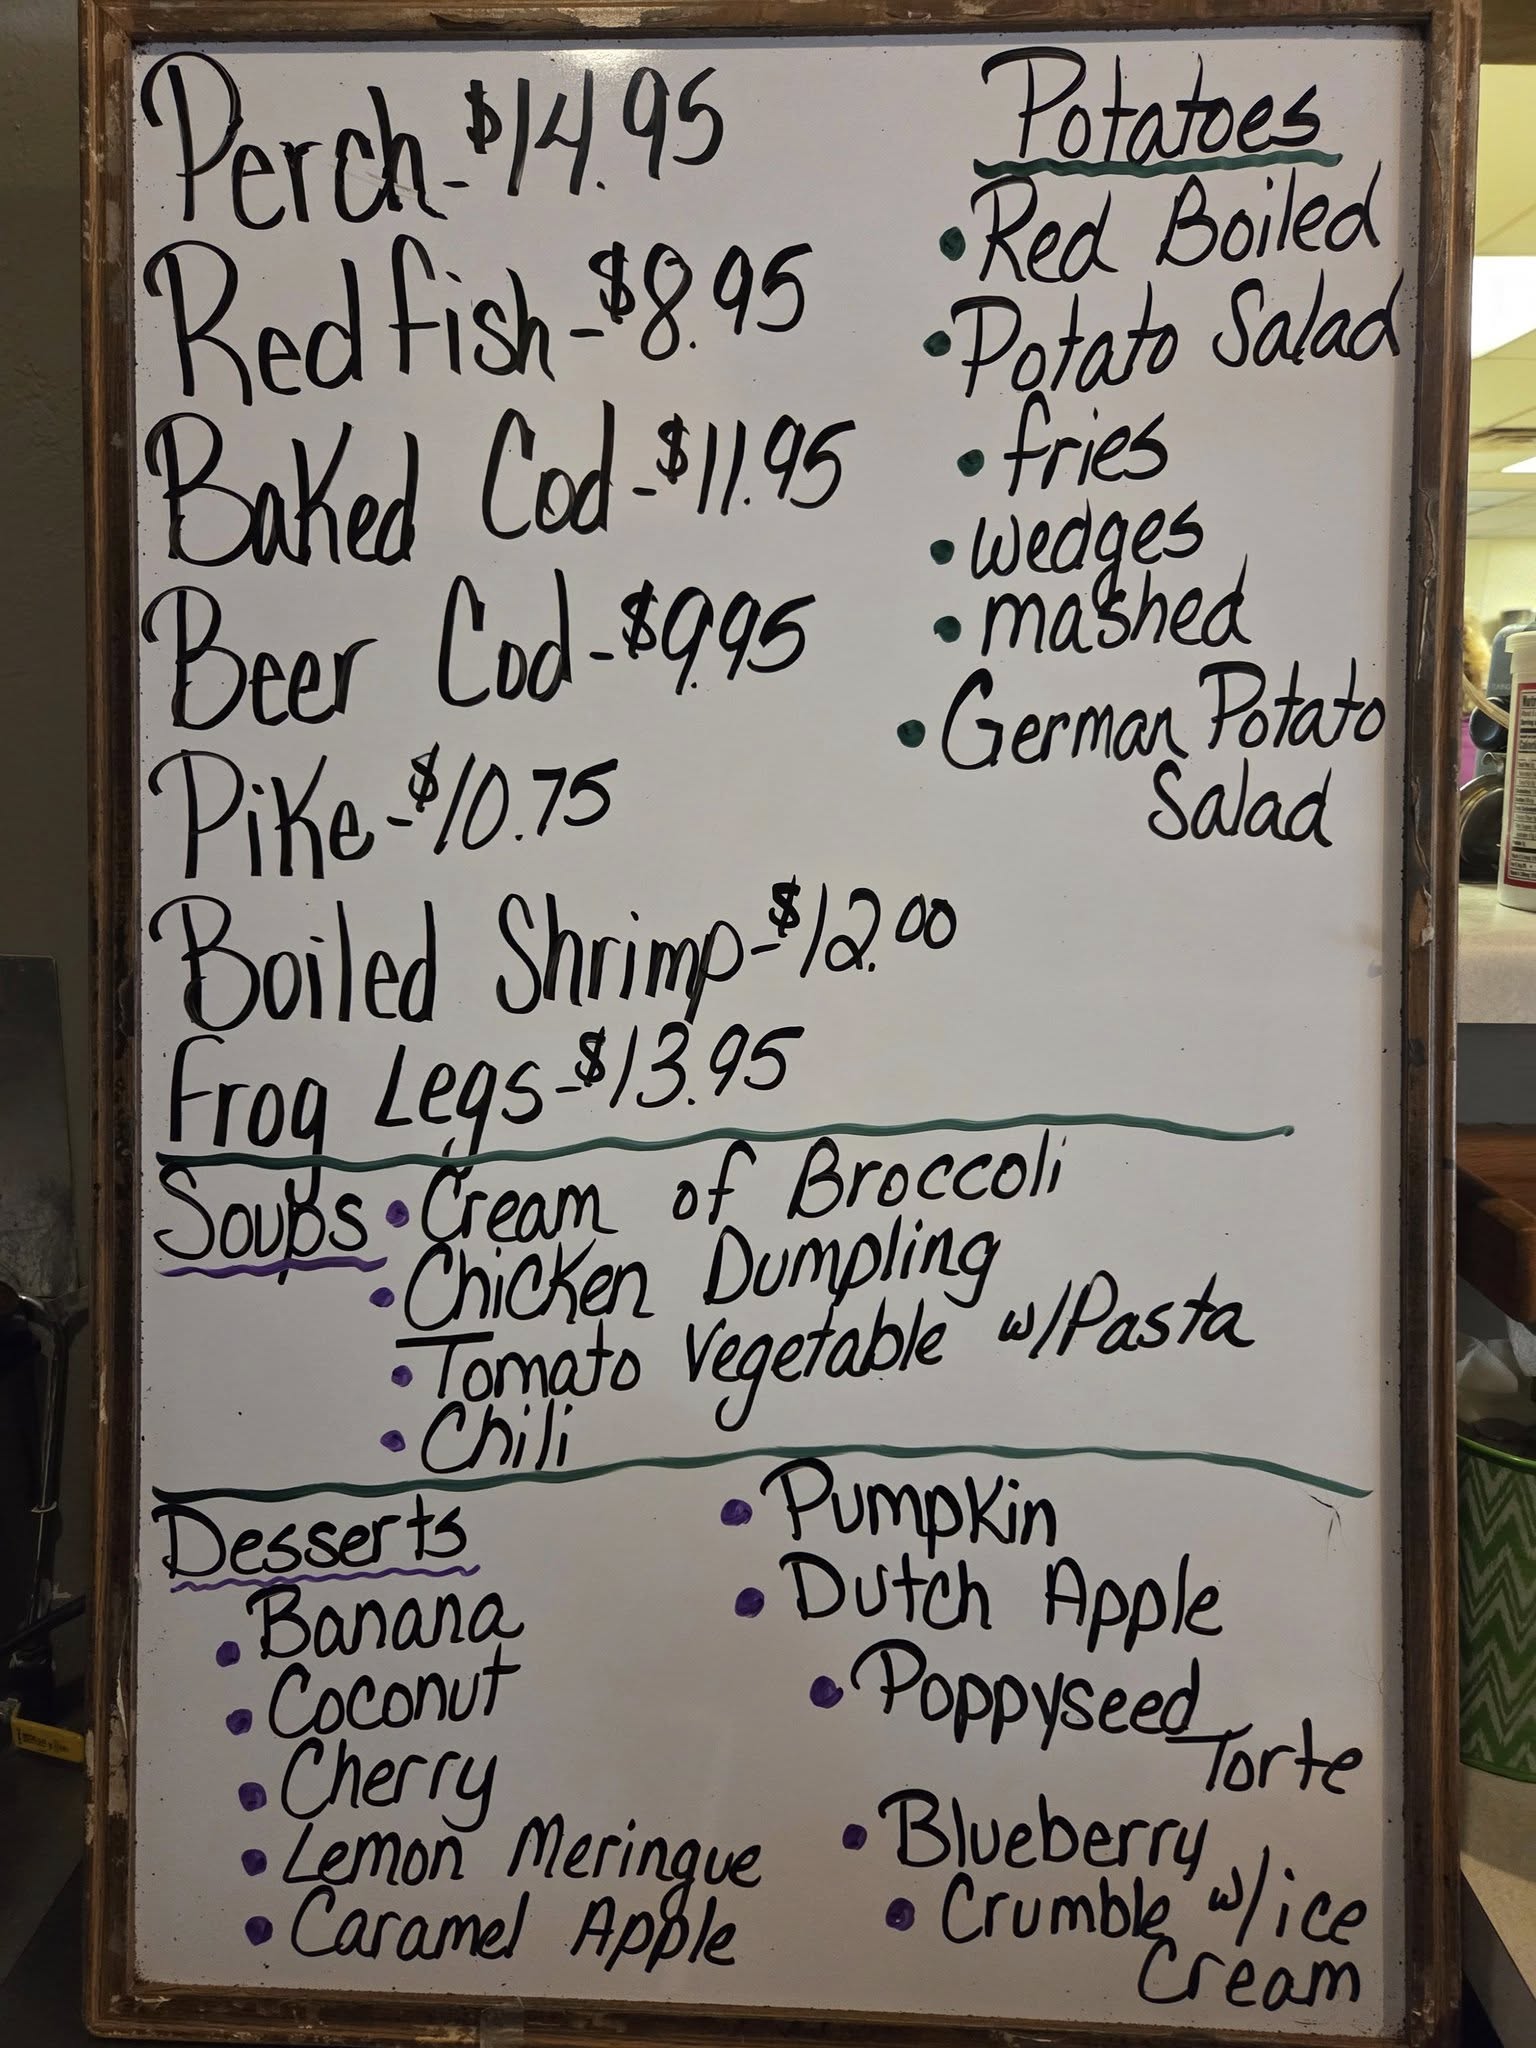 Perch - $14.95
Redfish - $8.95
Baked Cod - $11.95
Beer Cod - $9.95
Pike - $10.75
Boiled Shrimp - $12.00
Frog Legs - $13.95
Potatoes
• Red Boiled
• Potato Salad
• fries
• wedges
• mashed
• German Potato
Salad
Soups • Cream of Broccoli
• Chicken Dumpling
• Tomato Vegetable w/Pasta
• Chili
Desserts
• Banana
• Coconut
• Cherry
• Lemon Meringue
• Caramel Apple
• Pumpkin
• Dutch Apple
• Poppyseed
Torte
• Blueberry
• Crumble w/ice
Cream